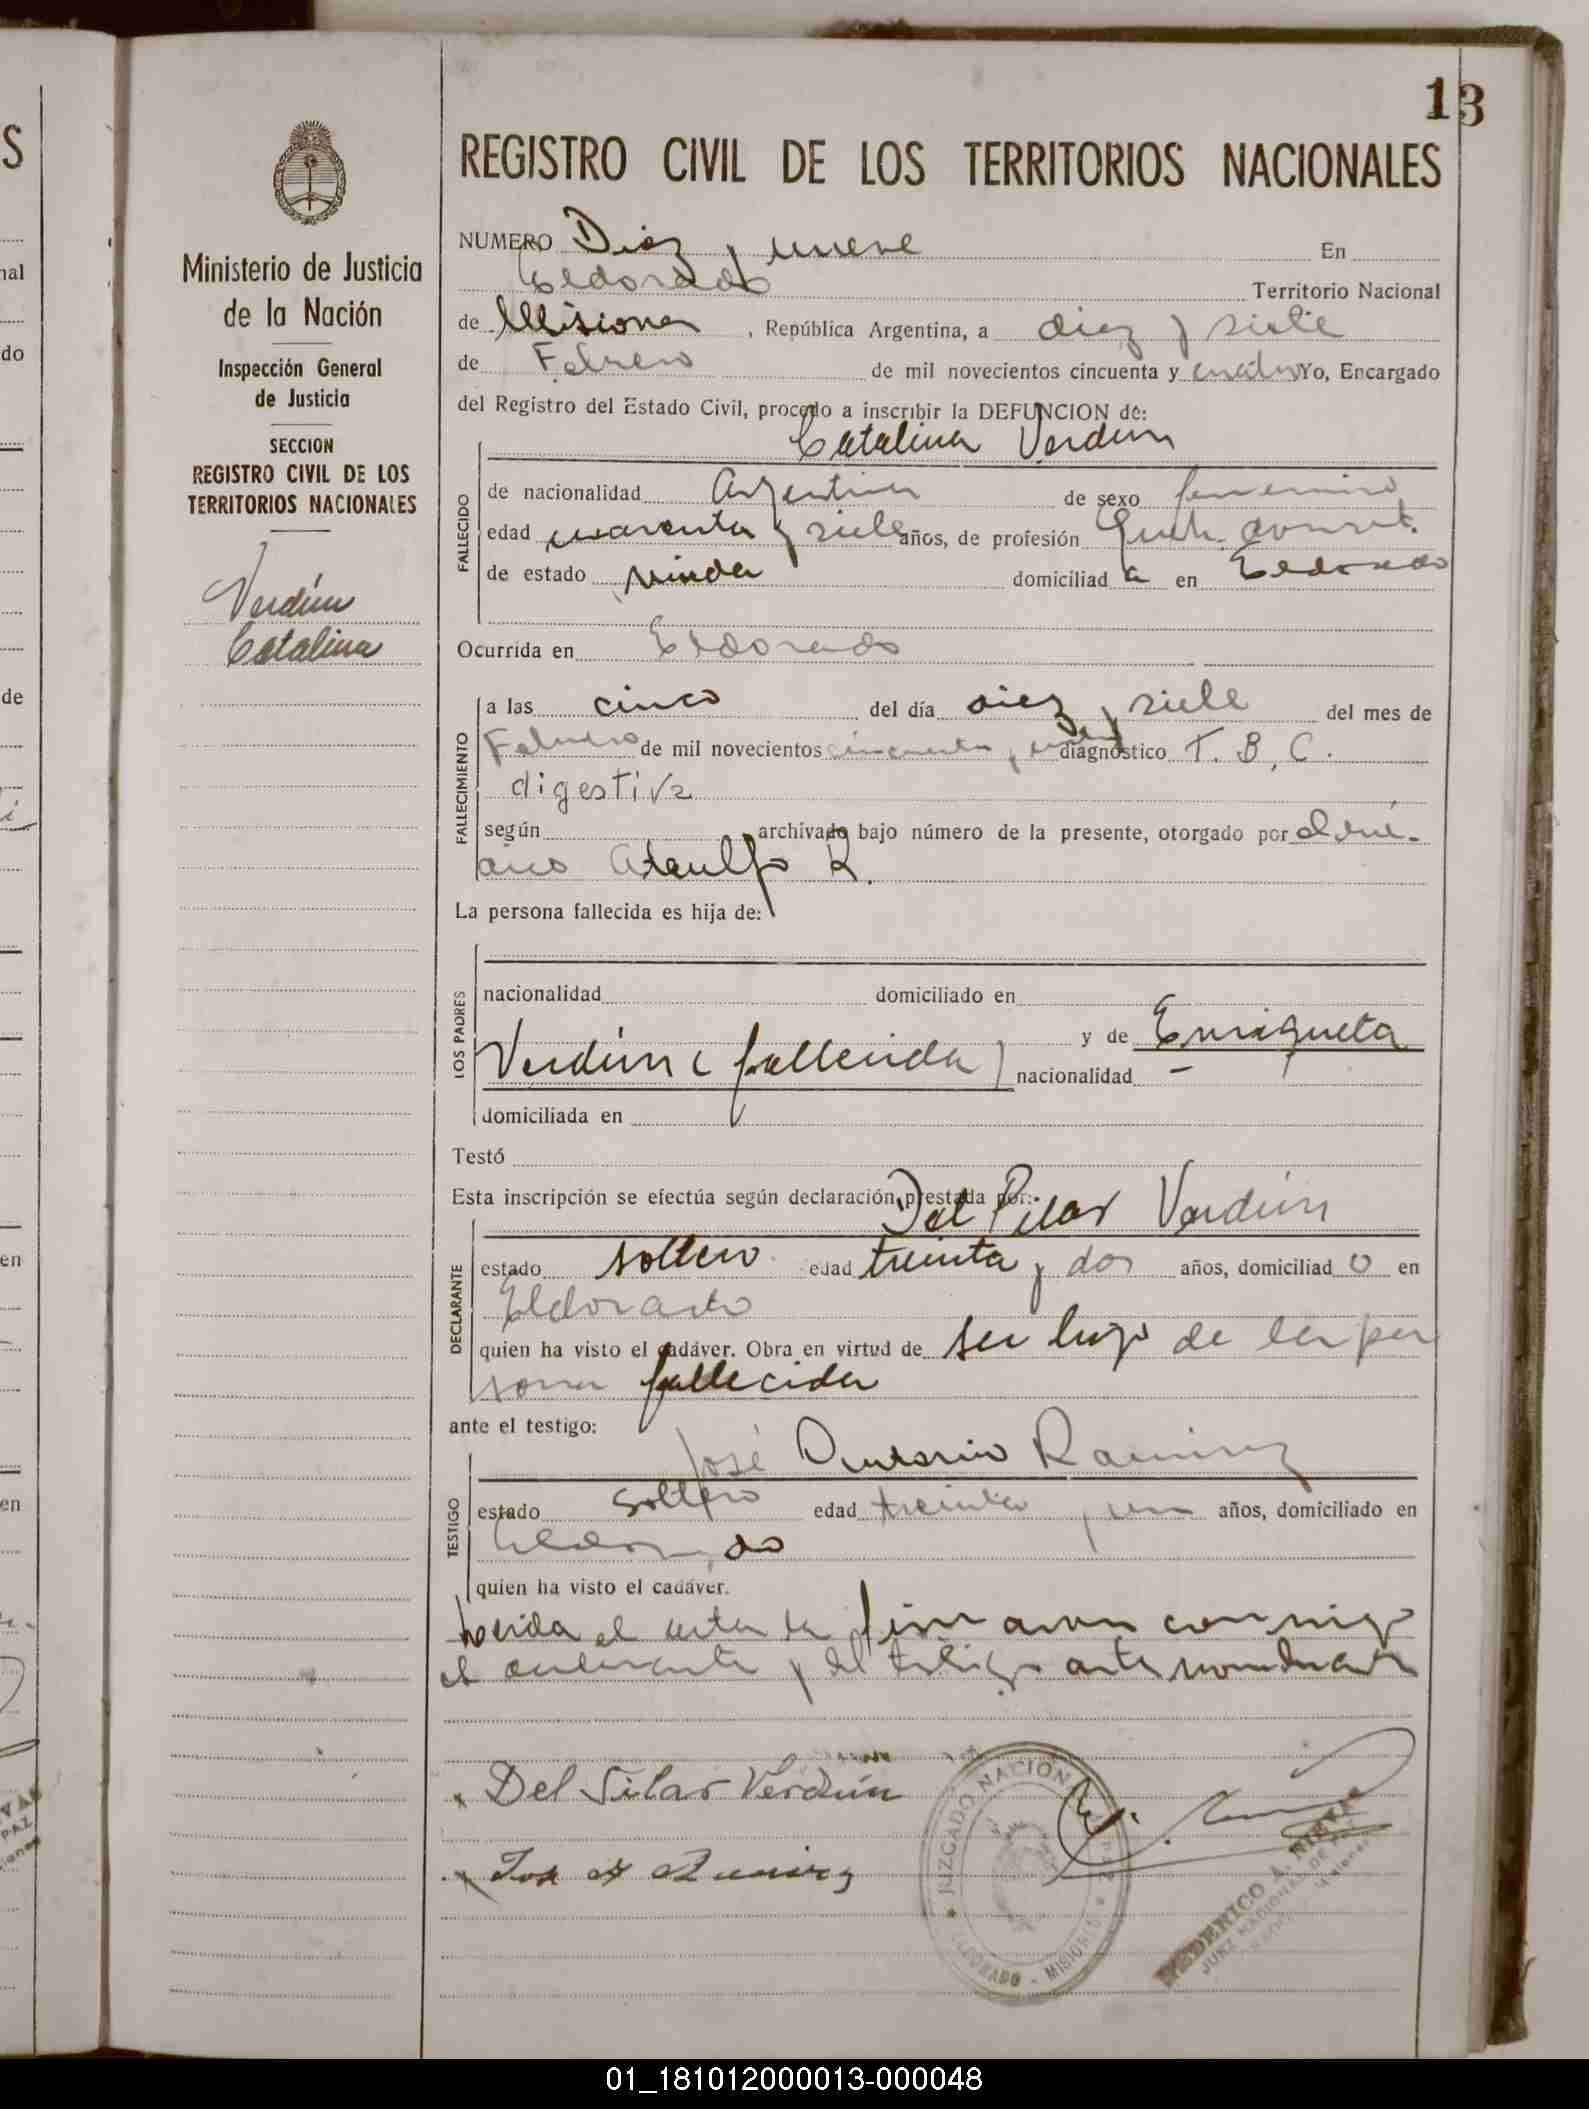 13
REGISTRO CIVIL DE LOS TERRITORIOS NACIONALES
Ministerio de Justicia
de la Nación
Inspección General
de Justicia
SECCION
REGISTRO CIVIL DE LOS
TERRITORIOS NACIONALES
Verdún
Catalina
NUMERO Diez y nueve En
Eldorado Territorio Nacional
de Misiones, República Argentina, a diez y siete
de Febrero de mil novecientos cincuenta y cuatro Yo, Encargado
del Registro del Estado Civil, procedo a inscribir la DEFUNCION de:
Catalina Verdun
FALLECIDO
de nacionalidad Argentina de sexo femenino
edad cuarenta y siete años, de profesión
de estado viuda domiciliad a en Eldorado
Ocurrida en Eldorado
FALLECIMIENTO
a las cinco del día diez y siete del mes de
Febrero de mil novecientos cincuenta y diagnóstico T. B. C.
digestiva
según archivado bajo número de la presente, otorgado por
Ataulfo R.
La persona fallecida es hija de:
LOS PADRES
nacionalidad domiciliado en
y de Enriqueta
Verdún (fallecida) nacionalidad -
domiciliada en
Testó
Esta inscripción se efectúa según declaración prestada por:
Del Pilar Verdún
DECLARANTE
estado soltero edad treinta y dos años, domiciliad o en
Eldorado
quien ha visto el cadáver. Obra en virtud de ser hijo de la per
sona fallecida
ante el testigo:
José Antonio Ramirez
TESTIGO
estado soltero edad treinta y un años, domiciliado en
Eldorado
quien ha visto el cadáver.
Leida el acta la firmaron conmigo
el declarante y el testigo antes nombrados
x Del Pilar Verdún
x Ramirez
JUZGADO NACIONAL DE PAZ
ELDORADO - MISIONES
FEDERICO A. NIEVAS
JUEZ NACIONAL DE PAZ
01_181012000013-000048